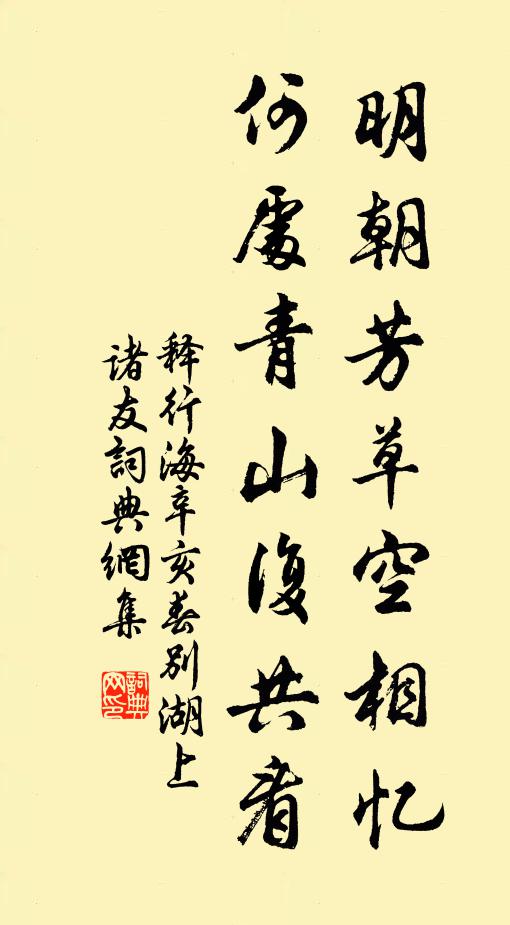 明朝芳草空相忆
何處青山復共看
释行海辛亥春别湖上
诸友詞典網集
詞典网印